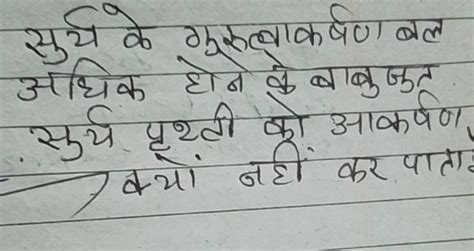 सुर्य के गुरुत्वाकर्षण बल
अधिक होने के बाबुजुत
सुर्य पृथ्वी को आकर्षण
क्यों नहीं कर पाता